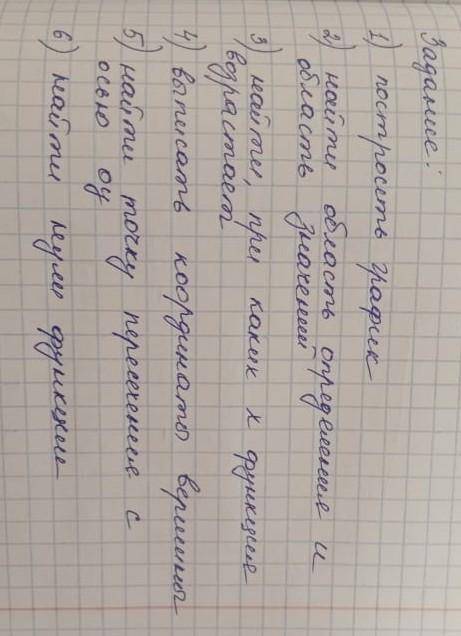 Задание:
1) построить график
2) найти область определения и
область значений
3) найти, при каких х функция
возрастает
4) выписать координаты вершины
5) найти точку пересечения с
осью оу
6) найти нули функции